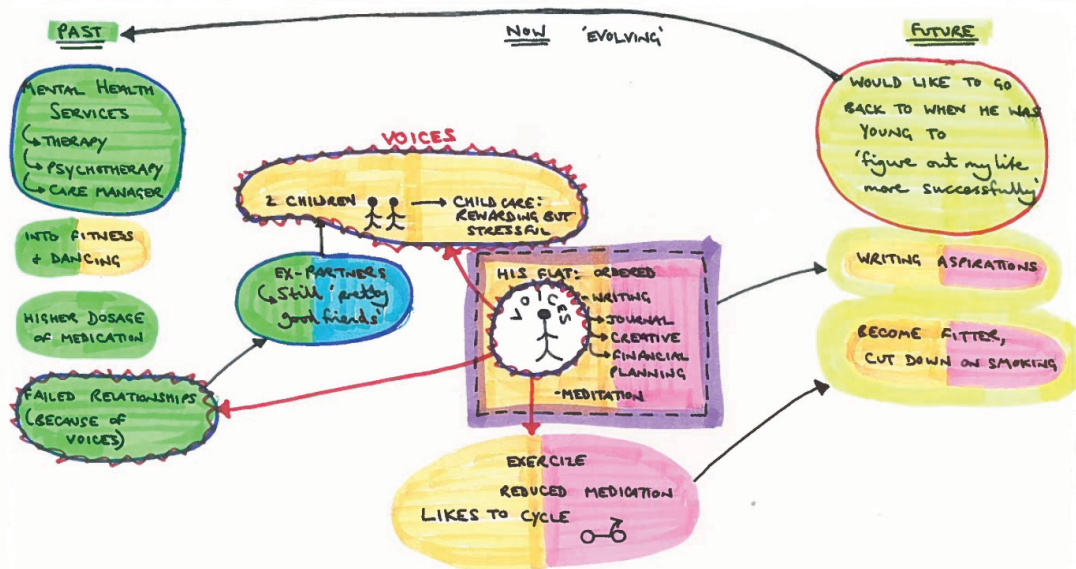 PAST
NOW 'EVOLVING'
FUTURE
MENTAL HEALTH
SERVICES
THERAPY
PSYCHOTHERAPY
CARE MANAGER
INTO FITNESS
& DANCING
HIGHER DOSAGE
OF MEDICATION
FAILED RELATIONSHIPS
(BECAUSE OF
VOICES)
VOICES
2 CHILDREN
CHILD CARE:
REWARDING BUT
STRESSFUL
EX-PARTNERS
Still 'pretty
good friends'
HIS FLAT: ORDERED
VOICES
-WRITING
JOURNAL
CREATIVE
FINANCIAL
PLANNING
-MEDITATION
EXERCIZE
REDUCED MEDICATION
LIKES TO CYCLE
WOULD LIKE TO GO
BACK TO WHEN HE WAS
YOUNG TO
'figure out my life
more successfully'
WRITING ASPIRATIONS
BECOME FITTER,
CUT DOWN ON SMOKING